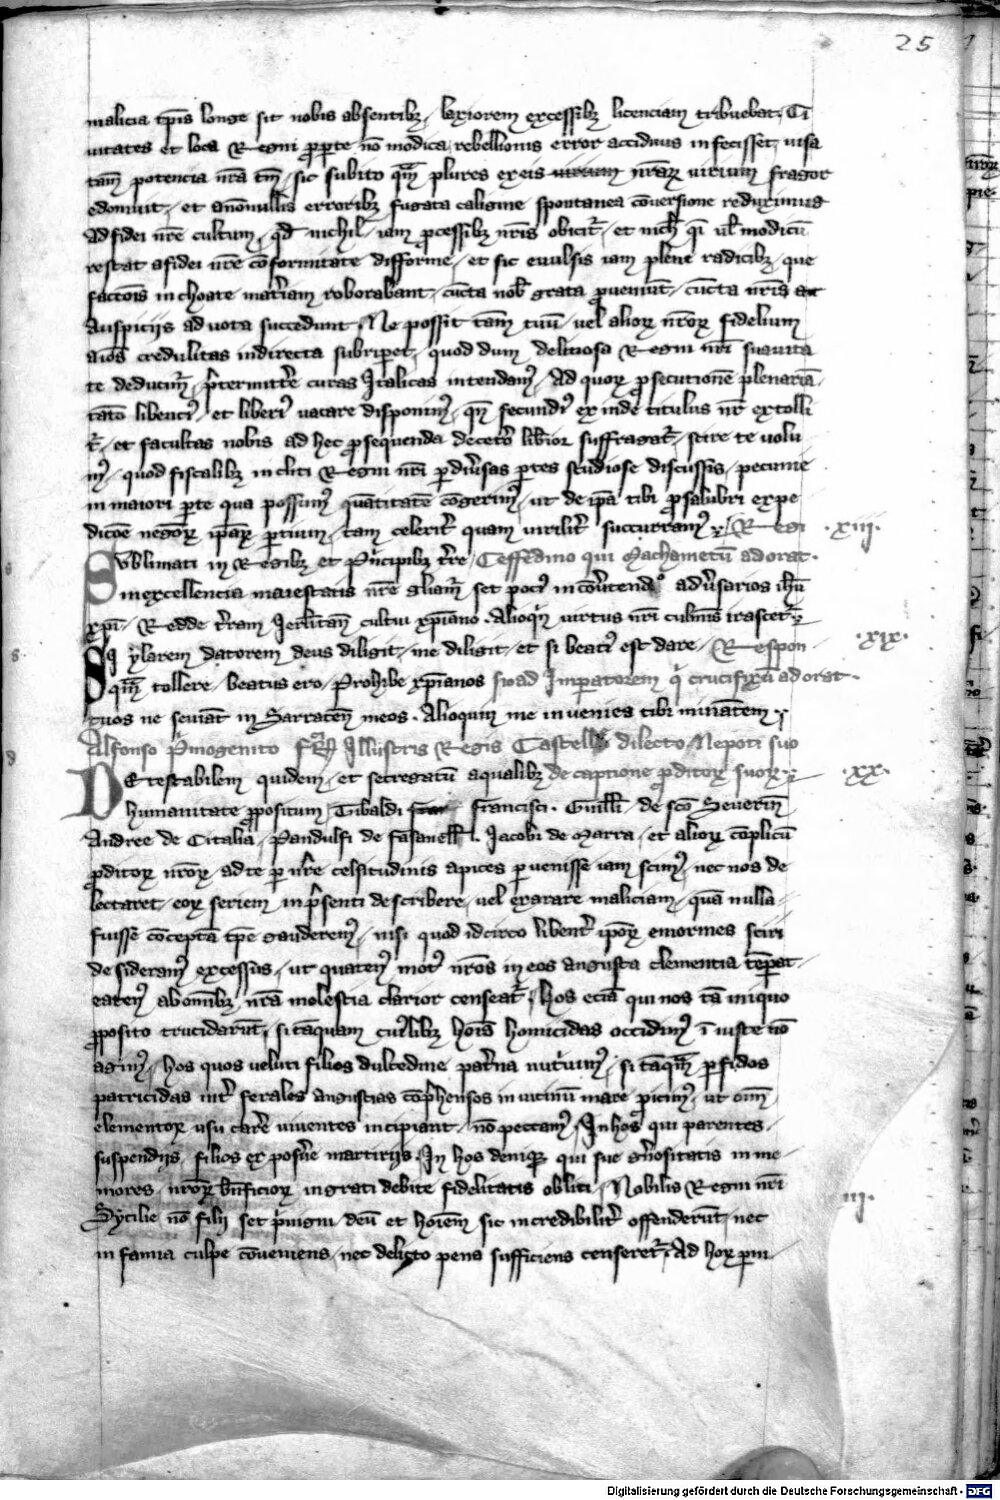 25
malicia tpis longe sit nobis absentibz, laxiorem excessibz licenciam tribuebat, Ci
uitates et loca Regni pro parte no modica, rebellionis error accidiuus infecisset, uisa
tam potencia nra tm, sic subito qm plures ex eis uirium nrar uirium fragor
edomuit, et anonullis erroribz fugata caligine spontanea couersione reduximus
ad fidei nre cultum, qd nichil iam processibz nris obicit, et nich qi ul modicu
restat a fidei nre coformitate difforme, et sic euulsis iam plene radicibz, que
factois inchoate materiam roborabant, cucta nob grata proueniut, cucta nris
Auspicijs ad uota succedunt, Ne possit tam tuu, uel alior nror fidelium
aios credulitas indirecta subripet, quod dum deliciosa Regni nri suauita
te deducimr, pretermittere curas Italicas intendam, Ad quor prosecutione plenaria
tato libenci, et liberi uacare disponim, qm fecundi ex inde titulus nr extolli
t, et facultas nobis ad hec prosequenda decetero liberior suffragat, scire te uolu
m, quod fiscalibz incliti Regni nri per diuersas partes studiose discussis, pecunie
in maiori parte qua possum quatitate cogerim, ut de ipa tibi pro salubri expe
dicoe negor ipar partium, tam celerit quam uirilit succurram, Regi .xiij.
Sublimati in Regibz et Principibz tre, Ceffedino qui Machametu adorat.
in excellencia maiestatis nre gliam set poci in couertend aduersarios ihu
xpi, Redde terram Ierlitam cultui xpiano. Alioqn uirtus nri culmis irascet
Si ylarem datorem deus diligit, me diligit, et si beaci est dare, Respon .xix.
qm tollere, beatus ero, Prohibe xpianos sio ad Imperatorem qi crucifixu adorat.
tuos ne seuiat in Sarracen meos. Alioquin me inuenies tibi minatem
Alfonso Primogenito Illustris Regis Castell dilecto Nepoti suo
Detestabilem quidem, et secregatu a qualibz de captione proditor suor .xx.
humanitate propositum, Tibaldi francisci. Guill. de sco Seuerin
Andree de Citalia, Pandulfi de fasanell. Iacobi de Marra, et alior coplicu
proditor nror, ad te per nre celsitudinis apices peruenisse iam scim, nec nos de
lectaret, eor seriem in presenti describere, uel exarare maliciam, qua nulla
fuisse cocepta tpe gauderem, nisi quod idcirco libent ipor enormes sciri
desideram excessus, ut quaten mot nros in eos angusta clementia teperat
eaten ab omibz, nra molestia clarior censeat, Hos ecia qui nos ta iniquo
proposito trucidarut, si taquam cuilibz hois homicidas occidim i iuste no
agim, hos quos ueluti filios dulcedine paterna nutriuim, si taqm perfidos
patricidas int ferales angustias coprehensos in uicinu mare proicim, ut omi
elementor usu carere uiuentes incipiant, no peccam, In hos qui parentes
suspendijs, filios exposuere martirijs. In hos demique qui sue generositatis inme
mores, nror bnficior ingrati debite fidelitatis obliti, Nobilis Regni nri
Sycilie no filij set priuigni, deu et hoiem sic incredibilit offenderut, nec iij.
infamia culpe coueniens, nec delicto pena sufficiens censeret, Ad hor
Digitalisierung gefördert durch die Deutsche Forschungsgemeinschaft - DFG